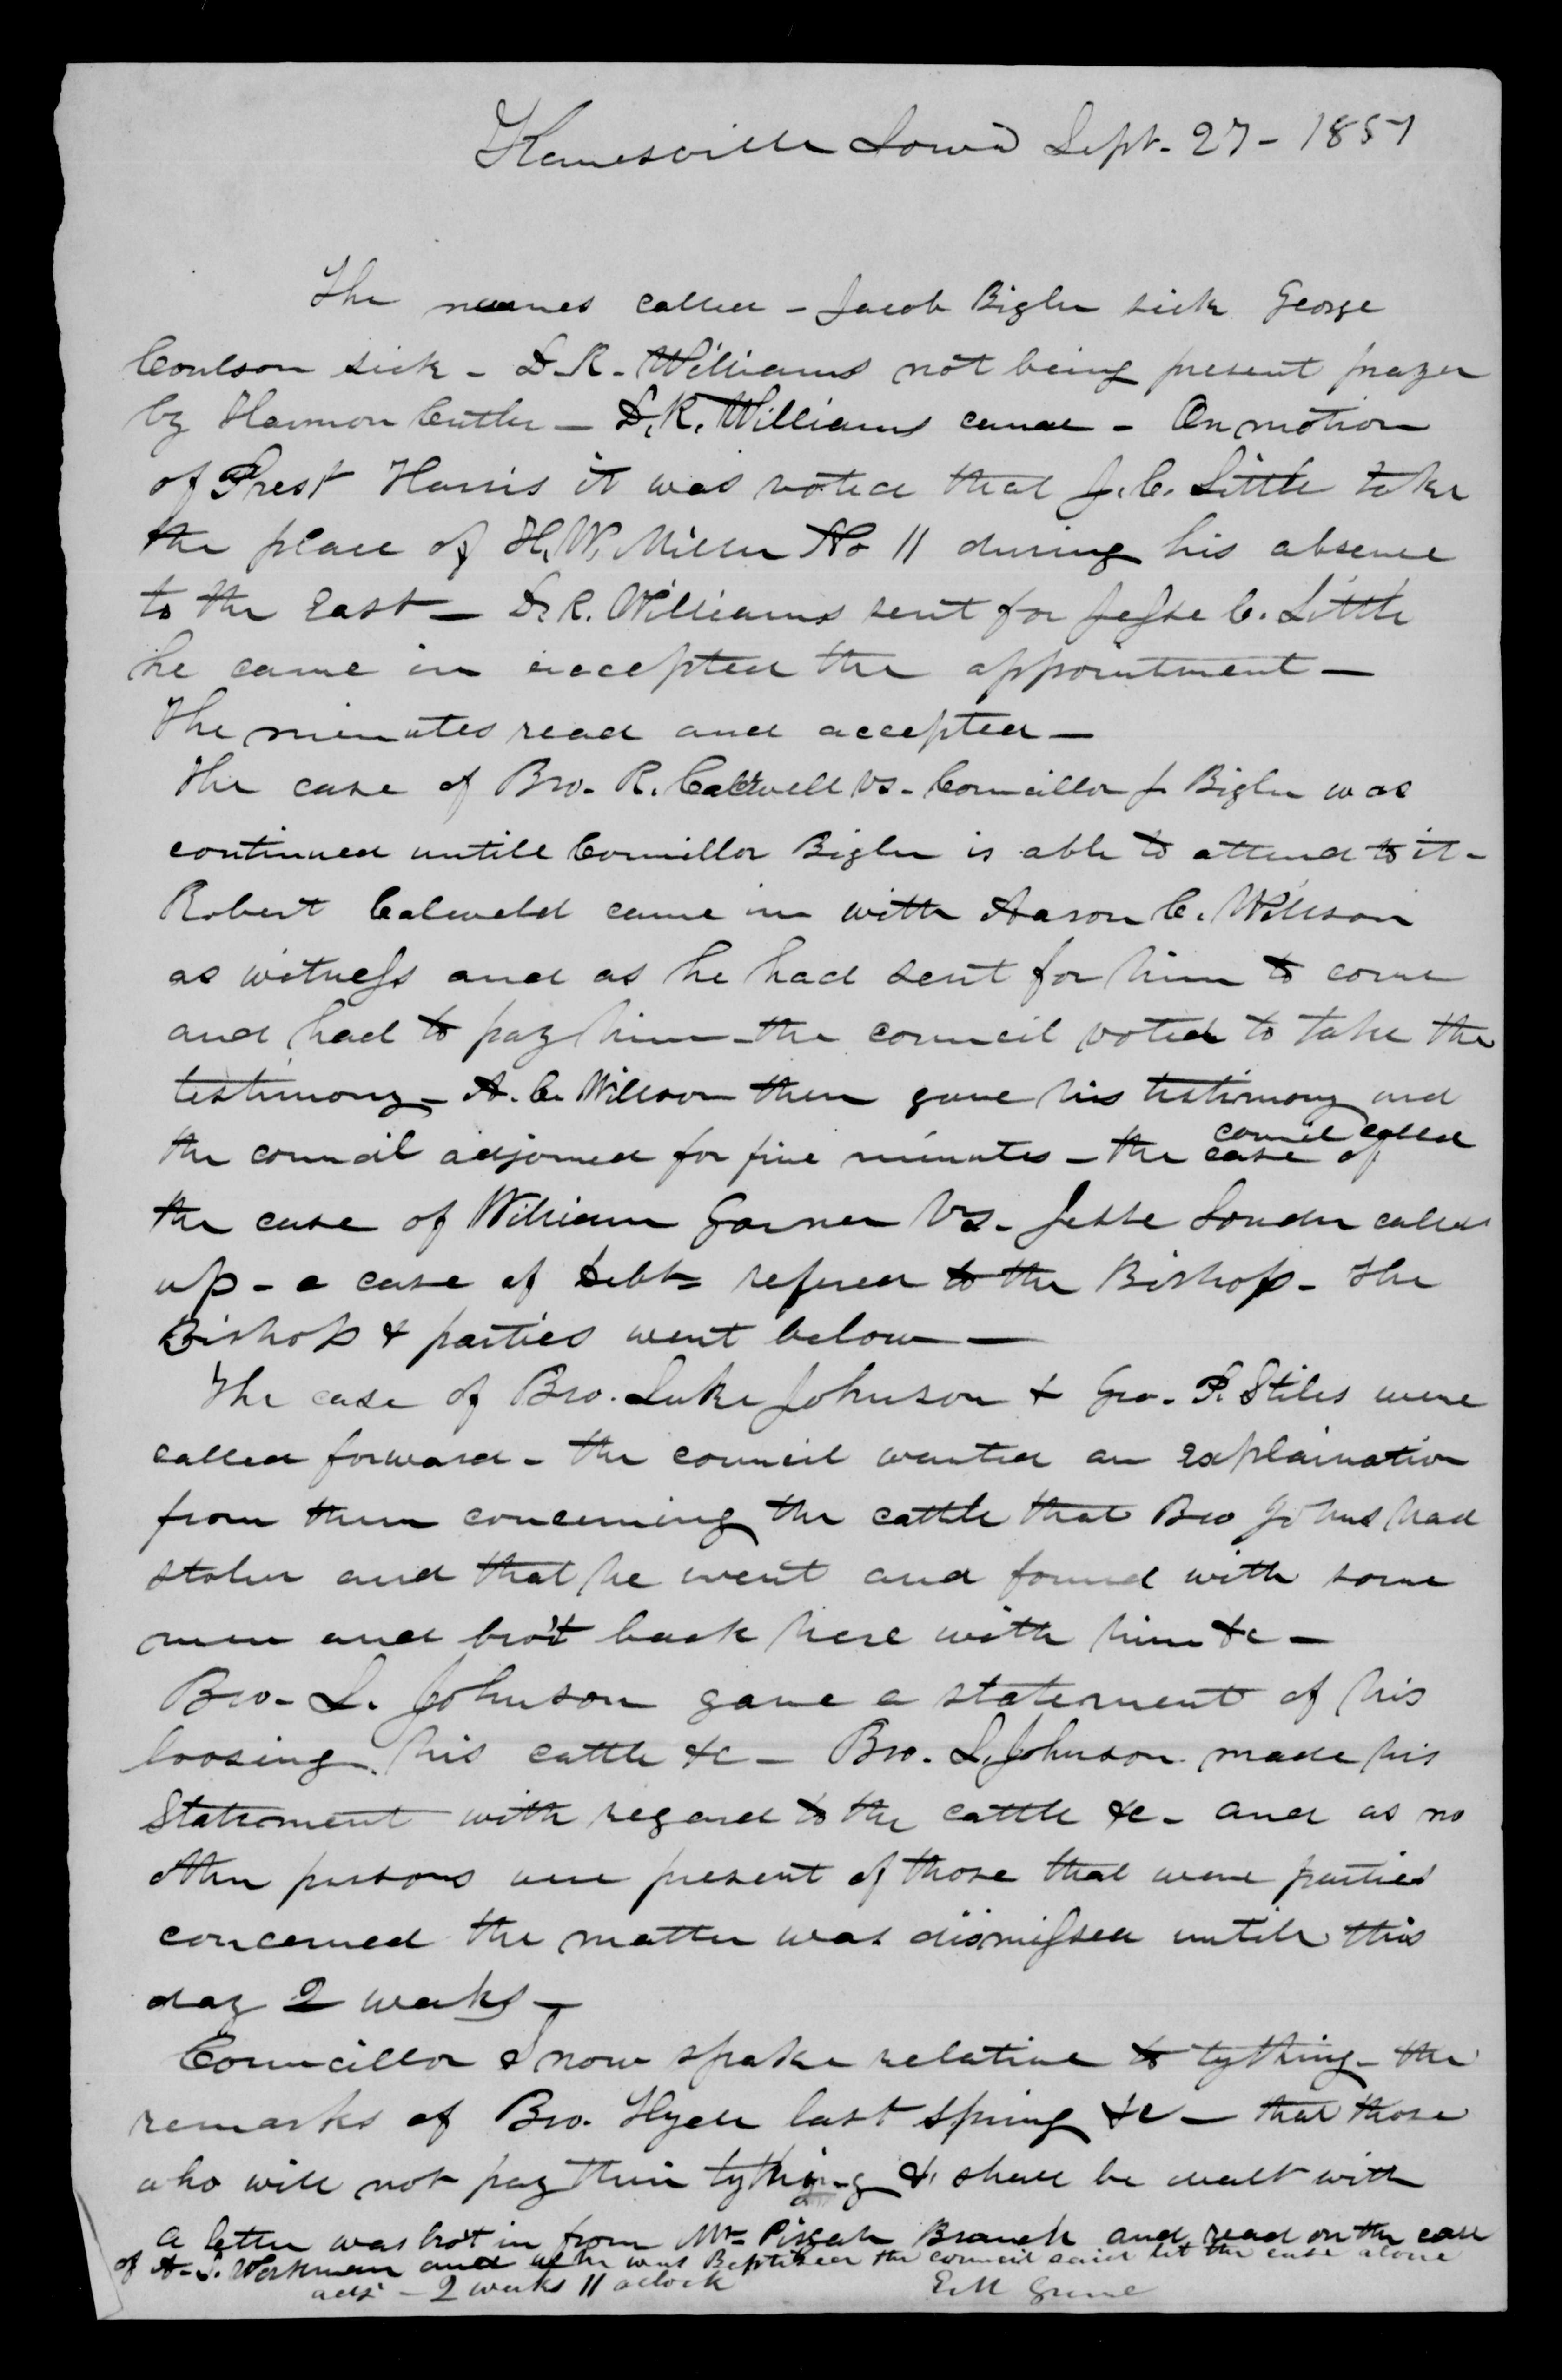 Kanesville Iowa Sept. 27 - 1851
The names called - Jacob Bigler sick George
Coulson sick - D. R. Williams not being present prayer
by Harmon Cutler - D. R. Williams came - On motion
of Prest Harris it was voted that J. C. Little take
the place of H. W. Miller No 11 during his absence
to the East - D. R. Williams sent for Jesse C. Little
he came in accepted the appointment -
The minutes read and accepted -
The case of Bro. R. Caldwell vs. Councillor J Bigler was
continued untill Councillor Bigler is able to attend to it -
Robert Calweld came in with Aaron C. Willson
as witness and as he had sent for him to come
and had to pay him - the council voted to take the
testimony - A. C. Willson then gave his testimony and
the council adjorned for five minutes - the case of
council called
the case of William Garner Vs. Jesse Souder called
up - a case of Debt = refered to the Bishop - the
Bishop & parties went below -
The case of Bro. Luke Johnson & Geo. P. Stiles were
called forward - the council wanted an explaination
from them concerning the cattle that Bro Johns had
stolen and that he went and found with some
men and bro't back here with him &c -
Bro. L. Johnson gave a statement of his
loosing his cattle &c - Bro. L. Johnson made his
Statement with regard to the cattle &c - and as no
other persons were present of those that were parties
concerned the matter was dismissed untill this
day 2 weeks -
Councillor Snow spake relative to tything - the
remarks of Bro. Hyde last spring &c - that those
who will not pay their tything & shall be dealt with
a letter was bro't in from Mt Pisgah Branch and read on the case
of A. S. Workman and as he was Baptised the council said let the case alone
adj - 2 weeks 11 oclock E. M Greene